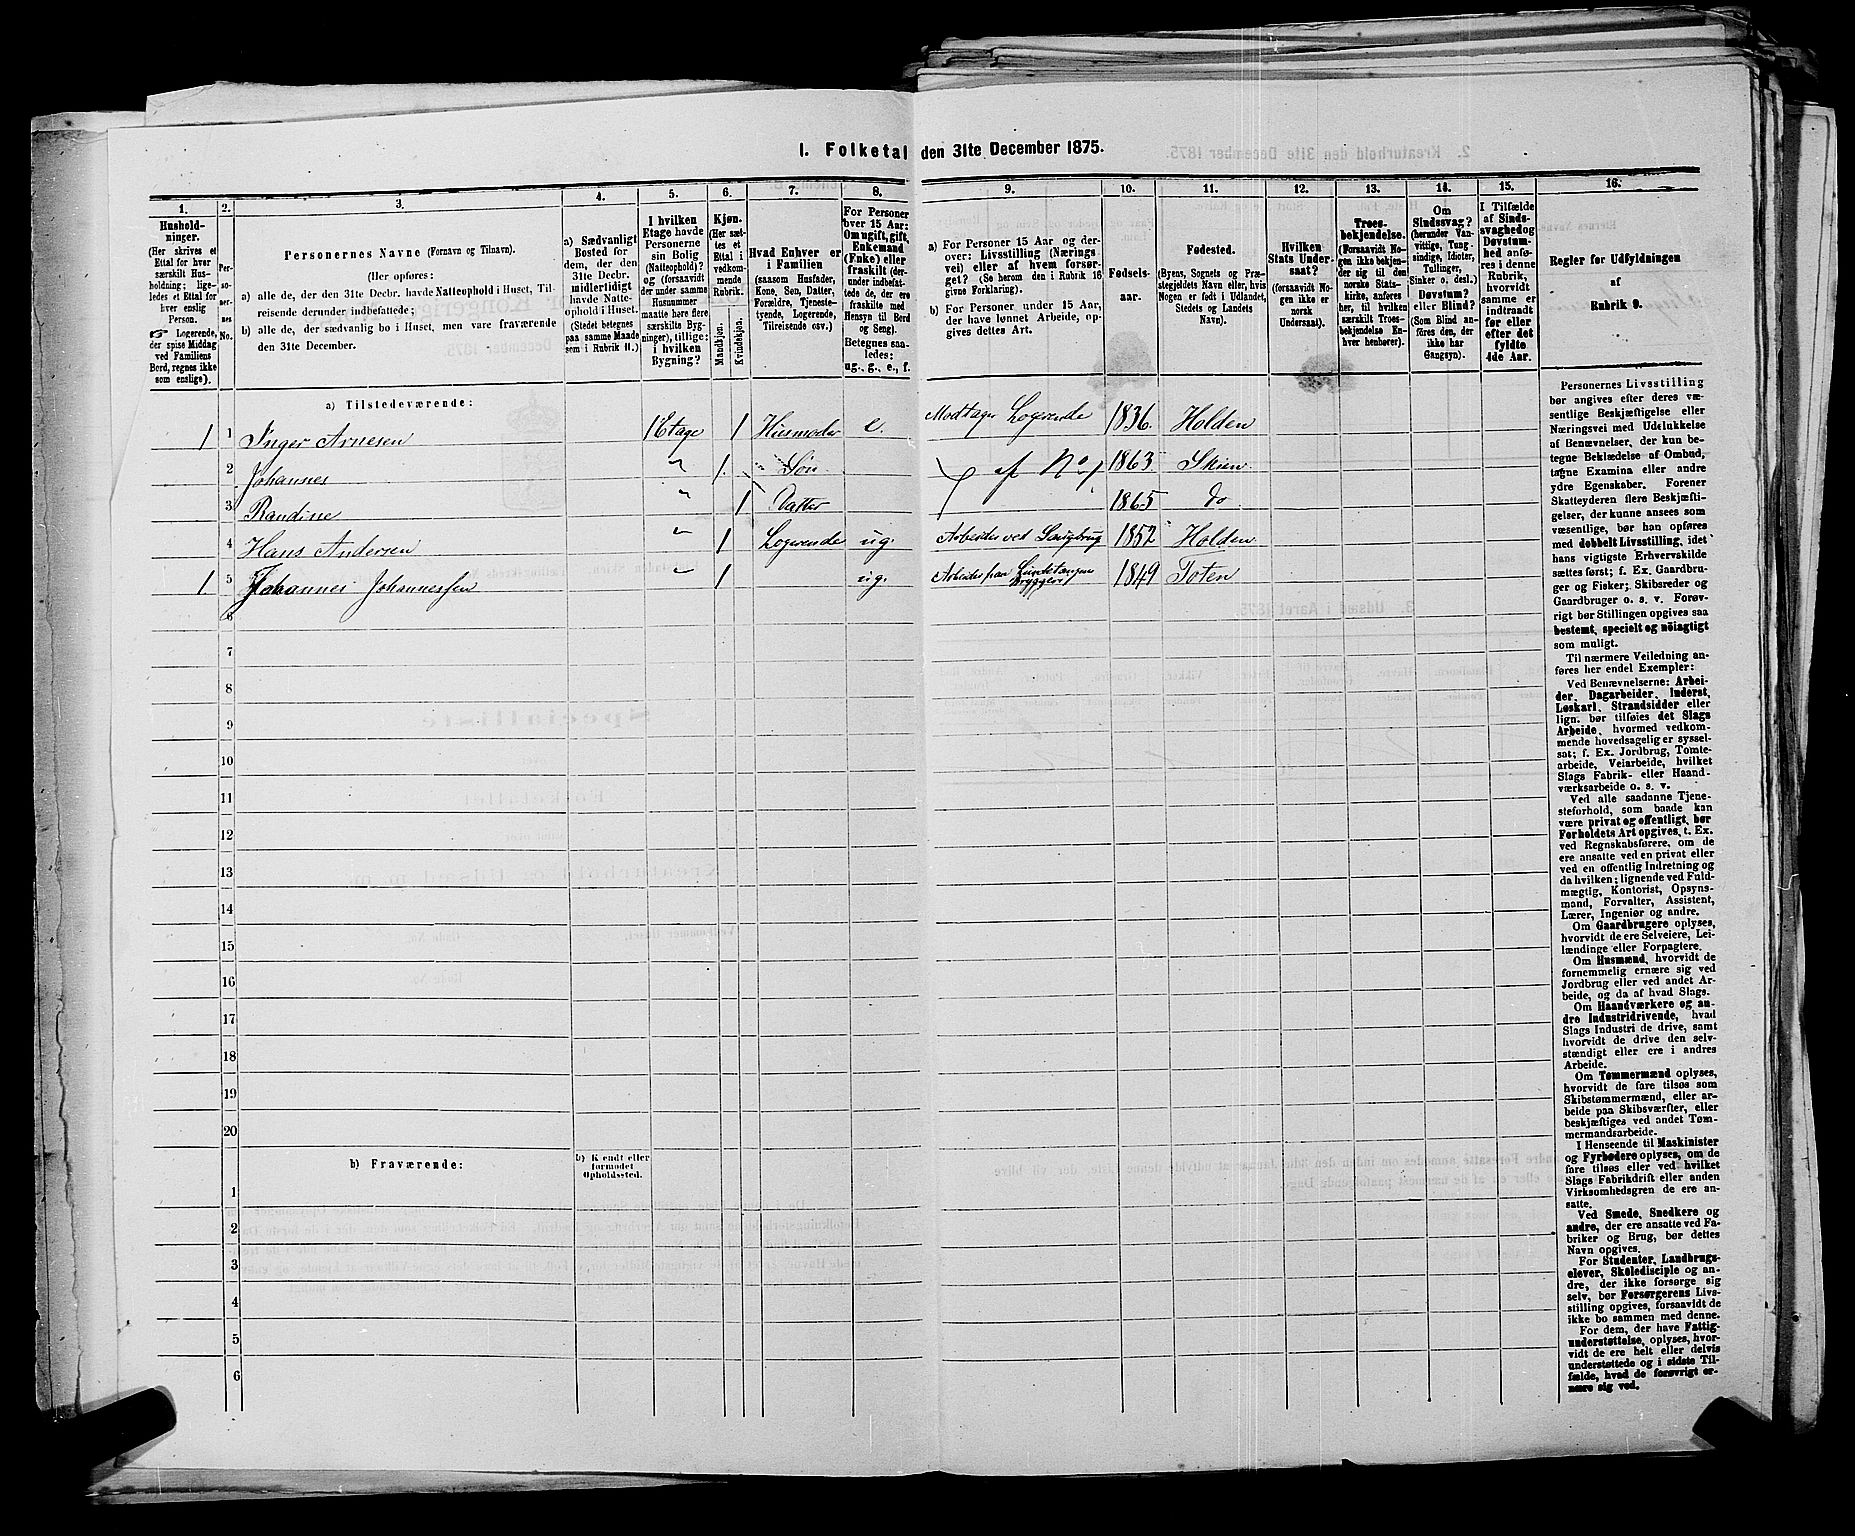 1. Folketal den 31te December 1875.
1.
Hushold-
ninger.
(Her skrives et
Ettal for hver
særskilt Hus-
holdning; lige-
ledes et Ettal for
hver enslig
Person.
☞ Logerende,
der spise Middag
ved Familiens
Bord, regnes ikke
som enslige).
2.
Per-
so-
ner-
nes
No.
3.
Personernes Navne (Fornavn og Tilnavn).
(Her opføres:
a) alle de, der den 31te Decbr. havde Natteophold i Huset, Til-
reisende derunder indbefattede;
b) alle de, der sædvanlig bo i Huset, men vare fraværende
den 31te December.
4.
a) Sædvanligt
Bosted for
dem, der den
31te Decbr.
midlertidigt
havde Natte-
ophold i Huset.
(Stedet betegnes
paa samme Maade
som i Rubrik 11.)
5.
I hvilken
Etage havde
Personerne
sin Bolig
(Natteophold)?
og (forsaavidt
der under samme
Husnummer
maatte høre flere
særskilte Byg-
ninger), tillige:
i hvilken
Bygning?
6.
Kjøn.
(Her sæt-
tes et
Ettal i
vedkom-
mende
Rubrik.
Mandkjøn.
Kvindekjøn.
7.
Hvad Enhver er
i Familien
(saasom Husfader,
Kone, Søn, Datter,
Forældre, Tjeneste-
tyende, Logerende,
Tilreisende osv.)
8.
For Personer
over 15 Aar:
Om ugift, gift,
Enkemand
(Enke) eller
fraskilt (der-
under indbefat-
tede, de, der ere
fraskilte med
Hensyn til Bord
og Seng).
Betegnes saa-
ledes:
ug., g., e., f.
9.
a) For Personer 15 Aar og der-
over: Livsstilling (Nærings-
vei) eller af hvem forsør-
get? (Se herom den i Rubrik 16
givne Forklaring).
b) For Personer under 15 Aar,
der have lønnet Arbeide, op-
gives dettes Art.
10.
Fødsels-
aar.
11.
Fødested.
(Byens, Sognets og Præ-
stegjeldets Navn eller, hvis
Nogen er født i Udlandet,
Stedets og Landets
Navn).
12.
Hvilken
Stats Under-
saat?
(forsaavidt No-
gen ikke er
norsk
Undersaat).
13.
Troes-
bekjendelse.
(Forsaavidt No-
gen ikke bekjen-
der sig til den
norske Stats-
kirke, anføres
her, til hvilken
særskilt Troes-
bekjendelse En-
hver henhører).
14.
Om
Sindssvag?
(herunder Van-
vittige, Tung-
sindige, Idioter,
Tullinger,
Sinker o, desl.)
Døvstum?
eller Blind?
(Som Blind an-
føres den, der
ikke har
Gangsyn).
15.
I Tilfælde
af Sinds-
svaghed og
Døvstum-
hed anfø-
res i denne
Rubrik,
hvorvidt
samme er
indtraadt
før eller
efter det
fyldte
4de Aar.
16.
Regler for Udfyldningen
af
Rubrik 9.
a) Tilstedeværende:
1 1 Inger Arnesen 1 Etage 1 Husmoder e. Modtager Logerende 1836. Holden
2 Johannes " 1. Søn af No 1 1863 Skien
3 Randine " 1 Datter " 1865 do
4 Hans Andersen " 1 Logerende ug. Arbeider ved Saugbrug 1852 Holden
1. 5 Johannes Johannessen " 1 ug. Arbeider paa Bryggeri 1849 Toten
6
7
8
9
10
11
12
13
14
15
16
17
18
19
20
b) Fraværende:
b) Kendt eller
formodet
Opholdssted.
1
2
3
4
5
6
Personernes Livsstilling
bør angives efter deres væ-
sentlige Beskjæftigelse eller
Næringsvei med Udelukkelse
af Benævnelser, der kun be-
tegne Beklædelse af Ombud,
tagne Examina eller andre
ydre Egenskaber. Forener
Skatteyderen flere Beskjæfti-
gelser, der kunne ansees som
væsentlige, bør han opføres
med dobbelt Livsstilling, idet
hans vigtigste Erhvervskilde
sættes først; f. Ex. Gaardbru-
ger og Fisker; Skibsreder og
Gaardbruger o. s. v. Forøv-
rigt bør Stillingen opgives saa
bestemt, specielt og nöiagtigt
som muligt.
Til nærmere Veiledning an-
føres her endel Exempler:
Ved Benævnelserne: Arbei-
der, Dagarbeider, Inderst,
Løskarl, Strandsidder eller
lign. bør tilføies det Slags
Arbeide, hvormed vedkom-
mende hovedsagelig er syssel-
sat; f. Ex. Jordbrug, Tomte-
arbeide, Veiarbeide, hvilket
Slags Fabrik- eller Haand-
værksarbeide o. s. v.
Ved alle saadanne Tjene-
steforhold, som baade kan
være privat og offentligt, bør
Forholdets Art opgives, t. Ex.
ved Regnskabsførere, om de
ere ansatte ved en privat eller
ved en offentlig Indretning og
da hvilken; lignende ved Fuld-
mægtig, Kontorist, Opsyns-
mand, Forvalter, Assistent,
Lærer, Ingeniør og andre.
Om Gaardbrugere oplyses,
hvorvidt de ere Selveiere, Lei-
lændinge eller Forpagtere.
Om Husmænd, hvorvidt de
fornemmelig ernære sig ved
Jordbrug eller ved andet Ar-
beide, og da af hvad Slags.
Om Haandværkere og an-
dre Industridrivende, hvad
Slags Industri de drive, samt
hvorvidt de drive den selv-
stændigt eller ere i andres
Arbeide.
Om Tømmermænd oplyses,
hvorvidt de fare tilsøs som
Skibstømmermænd, eller ar-
beide paa Skibsværfter, eller
beskjæftiges ved andet Tøm-
mermandsarbeide.
I Henseende til Maskinister
og Fyrbødere oplyses, om de
fare tilsøs eller ved hvilket
Slags Fabrikdrift eller anden
Virksomhedsgren de ere an-
satte.
Ved Smede, Snedkere og
andre, der ere ansatte ved Fa-
briker og Brug, bør dettes
Navn opgives.
For Studenter, Landbrugs-
elever, Skoledisciple og an-
dre, der ikke forsørge sig
selv, bør Forsørgerens Livs-
stilling opgives, forsaavidt de
ikke bo sammen med denne.
For dem, der have Fattig-
understøttelse, oplyses, hvor-
vidt de ere helt eller delvis
understøttede og i sidste Til-
fælde, hvad de forøvrigt er-
nære sig ved.